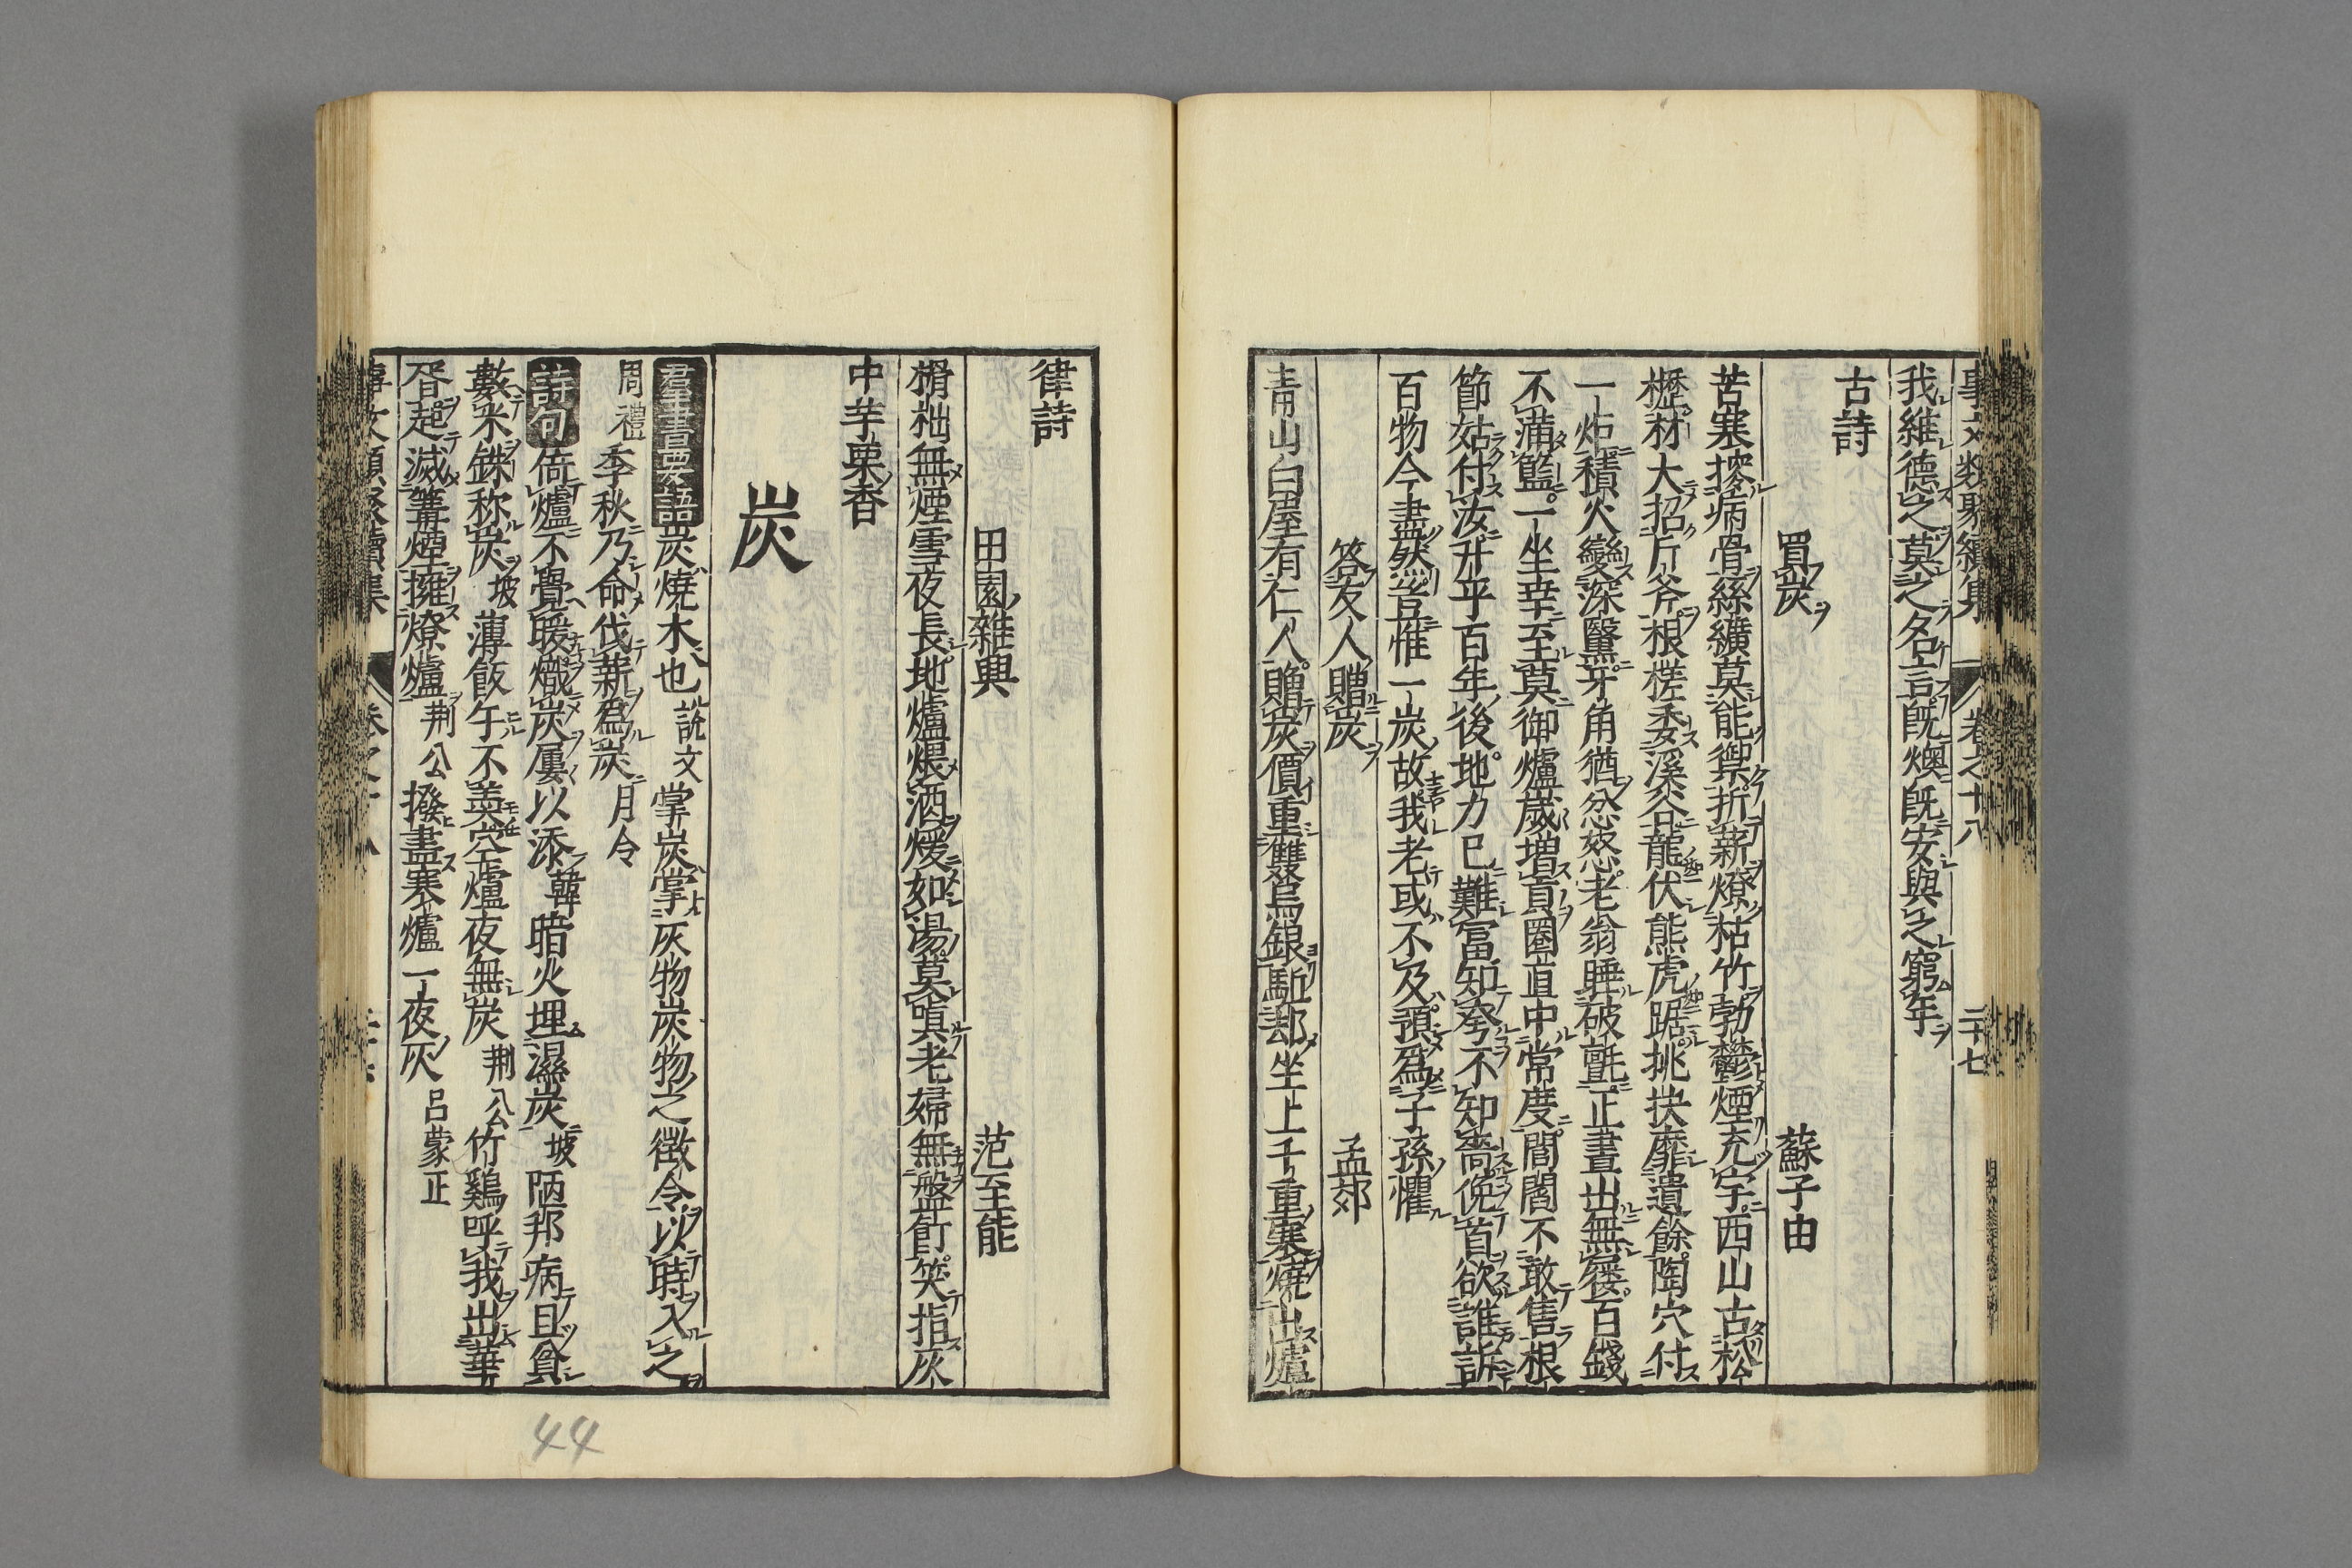 事文類聚續集 卷之十八 二十七
我維德之莫之名言既燠既安與之窮年
古詩
買炭 蘇子由
苦寒搜病骨絲纊莫能禦折薪燎枯竹勃鬱煙充宇西山古松
櫪材大招斤斧根槎委溪谷龍伏熊虎踞挑抉靡遺餘陶穴付
一炬積火變深黳牙角猶忿怒老翁睡破氈正晝出無屨百錢
不滿籃一坐幸至莫御爐歲增貢圈直中常度閭閻不敢售根
節姑付汝升平百年後地力已難富知夸不知嗇俛首欲誰訴
百物今盡然豈惟一炭故我老或不及預爲子孫懼
答友人贈炭 孟郊
青山白屋有仁人贈炭價重雙烏銀駈却坐上千重寒燒出爐
律詩
田園雜興 范至能
榾柮無煙雪夜長地爐煨酒煖如湯莫嗔老婦無盤飣笑指灰
中芋栗香
炭
羣書要語炭燒木也說文掌炭掌灰物炭物之徵令以時入之
周禮季秋乃命伐薪爲炭月令
詩句倚爐不覺暖熾炭屢以添韓暗火埋濕炭坡陋邦病且貧
數米銖称炭坡薄飯午不羮空爐夜無炭荆公竹鷄呼我出華
胥起滅篝煙擁燎爐荆公撥盡寒爐一夜灰呂蒙正